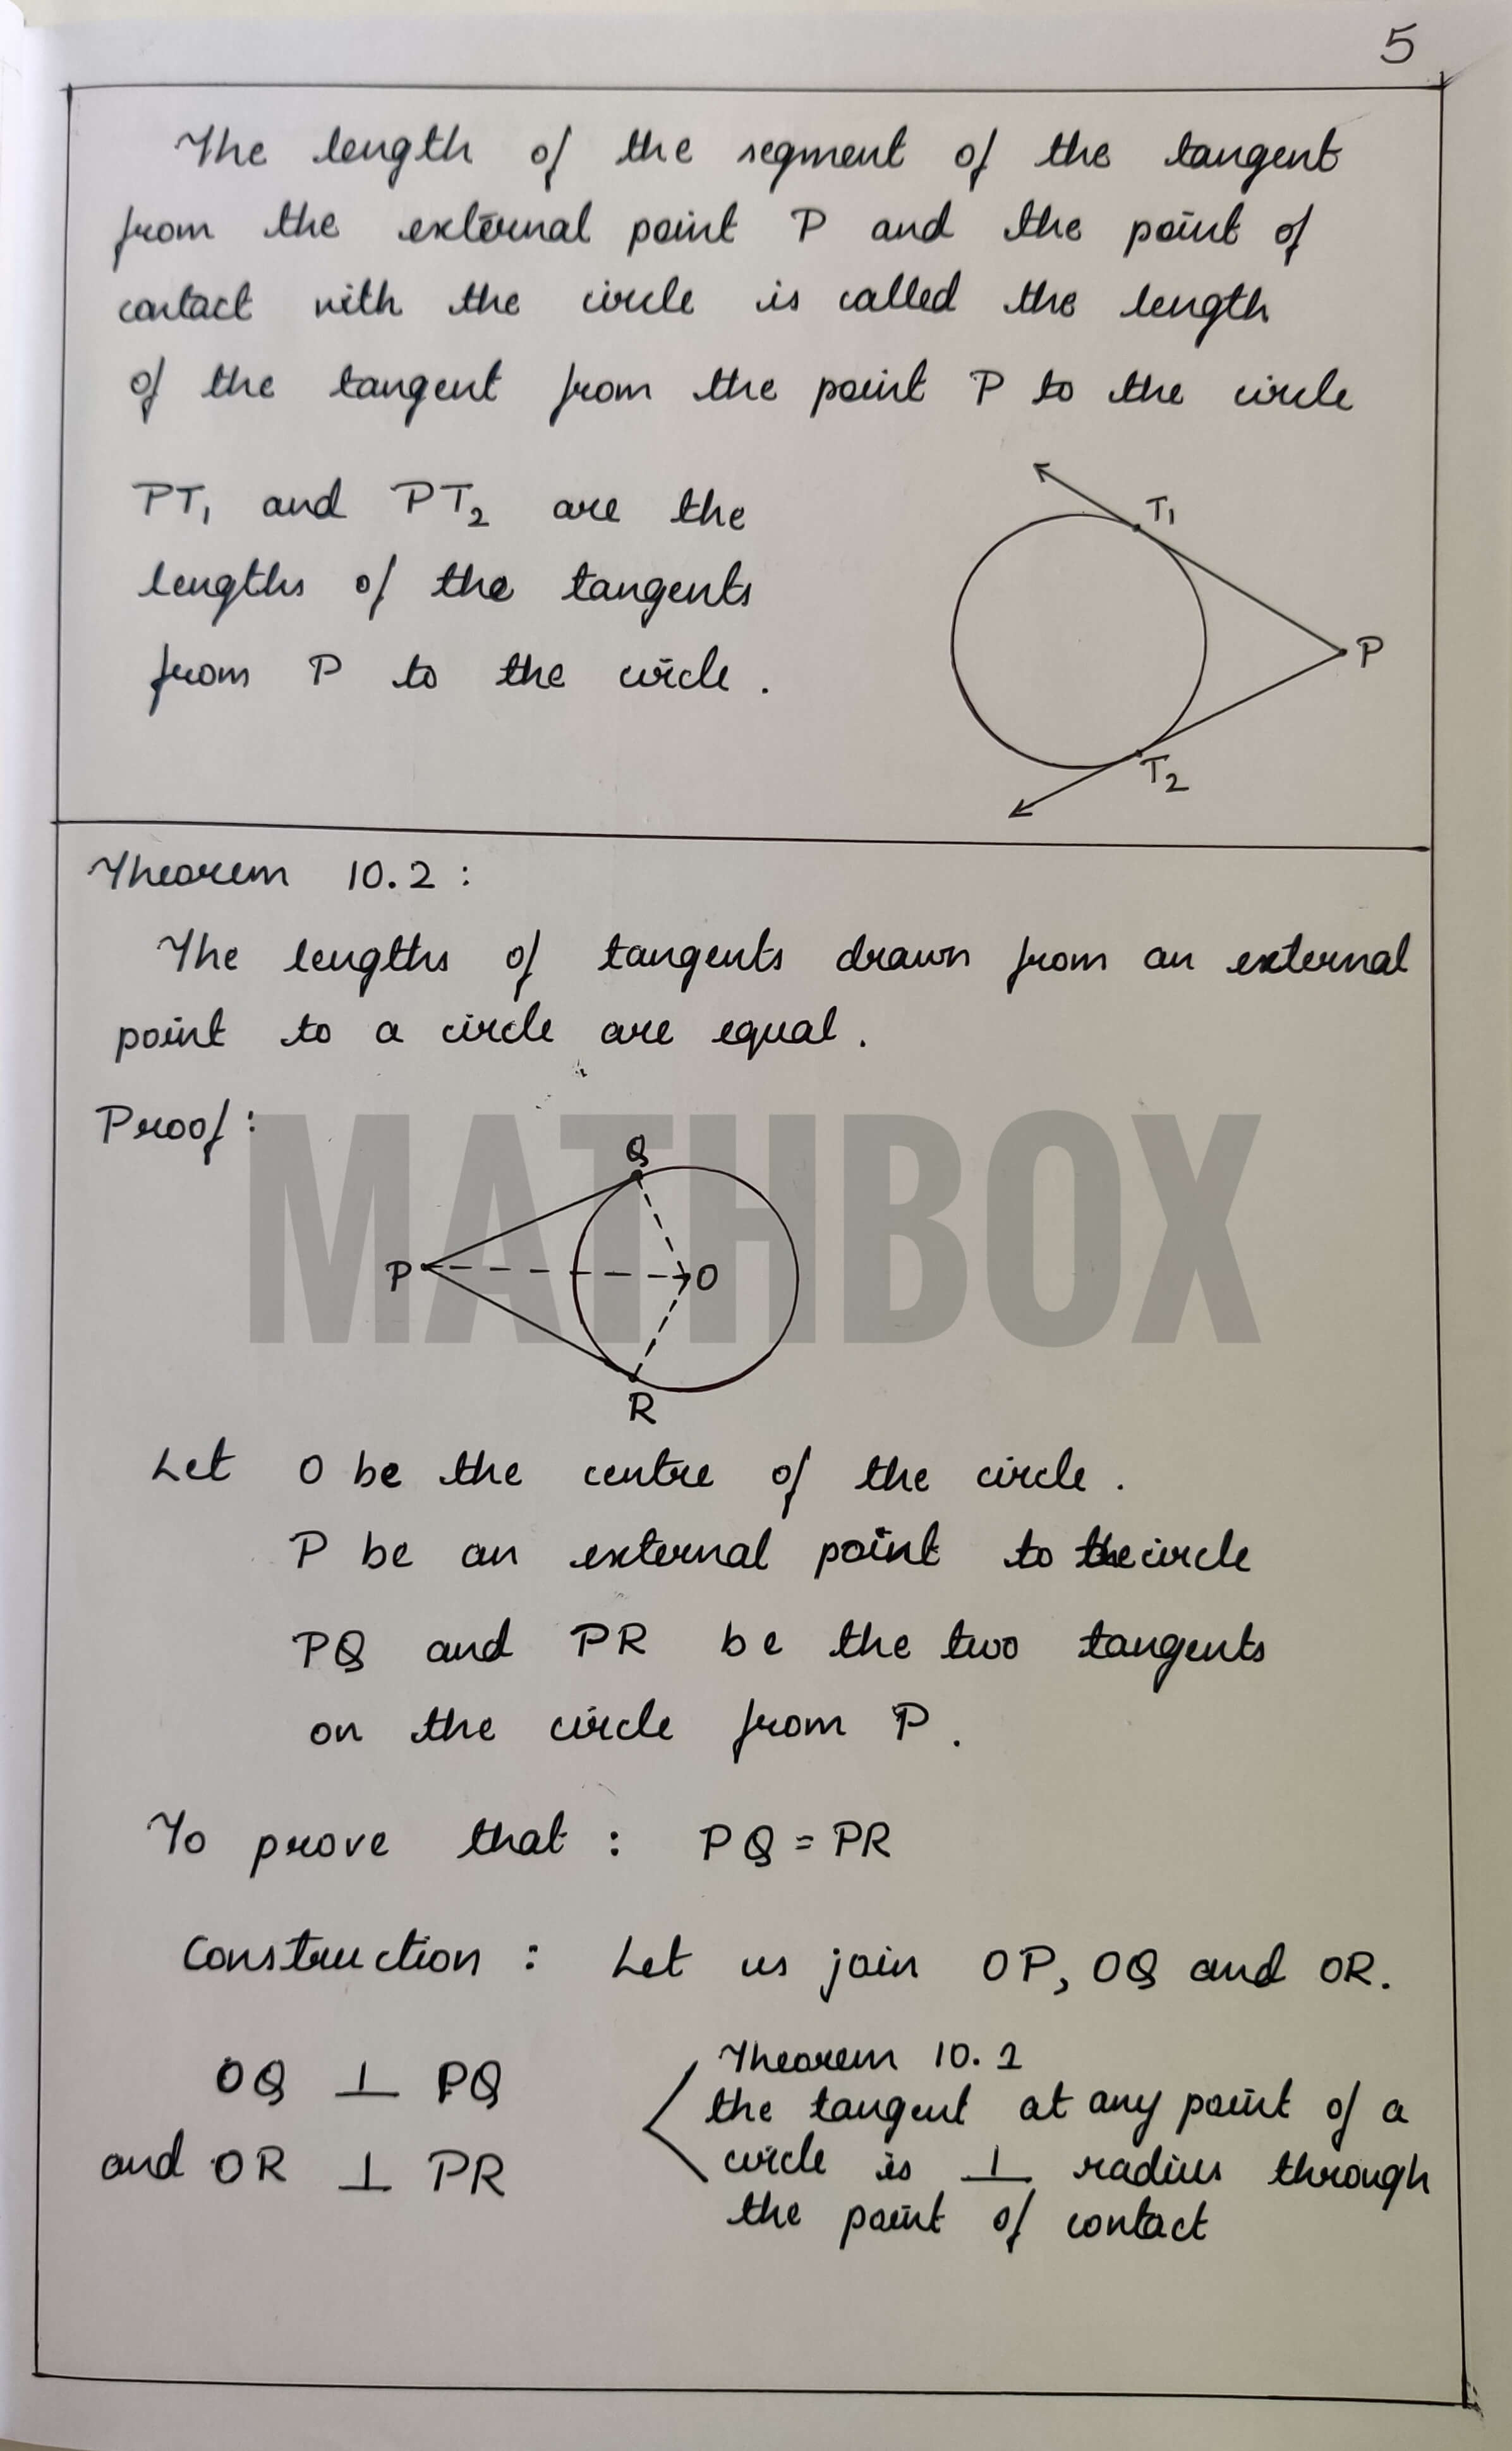 5
The length of the segment of the tangent
from the external point P and the point of
contact with the circle is called the length
of the tangent from the point P to the circle
PT₁ and PT₂ are the
lengths of the tangents
from P to the circle.
T₁
P
T₂
Theorem 10.2:
The lengths of tangents drawn from an external
point to a circle are equal.
Proof:
MATHBOX
Q
P
O
R
Let O be the centre of the circle.
P be an external point to the circle
PQ and PR be the two tangents
on the circle from P.
To prove that: PQ = PR
Construction: Let us join OP, OQ and OR.
OQ ⊥ PQ
and OR ⊥ PR
Theorem 10.1
the tangent at any point of a
circle is ⊥ radius through
the point of contact